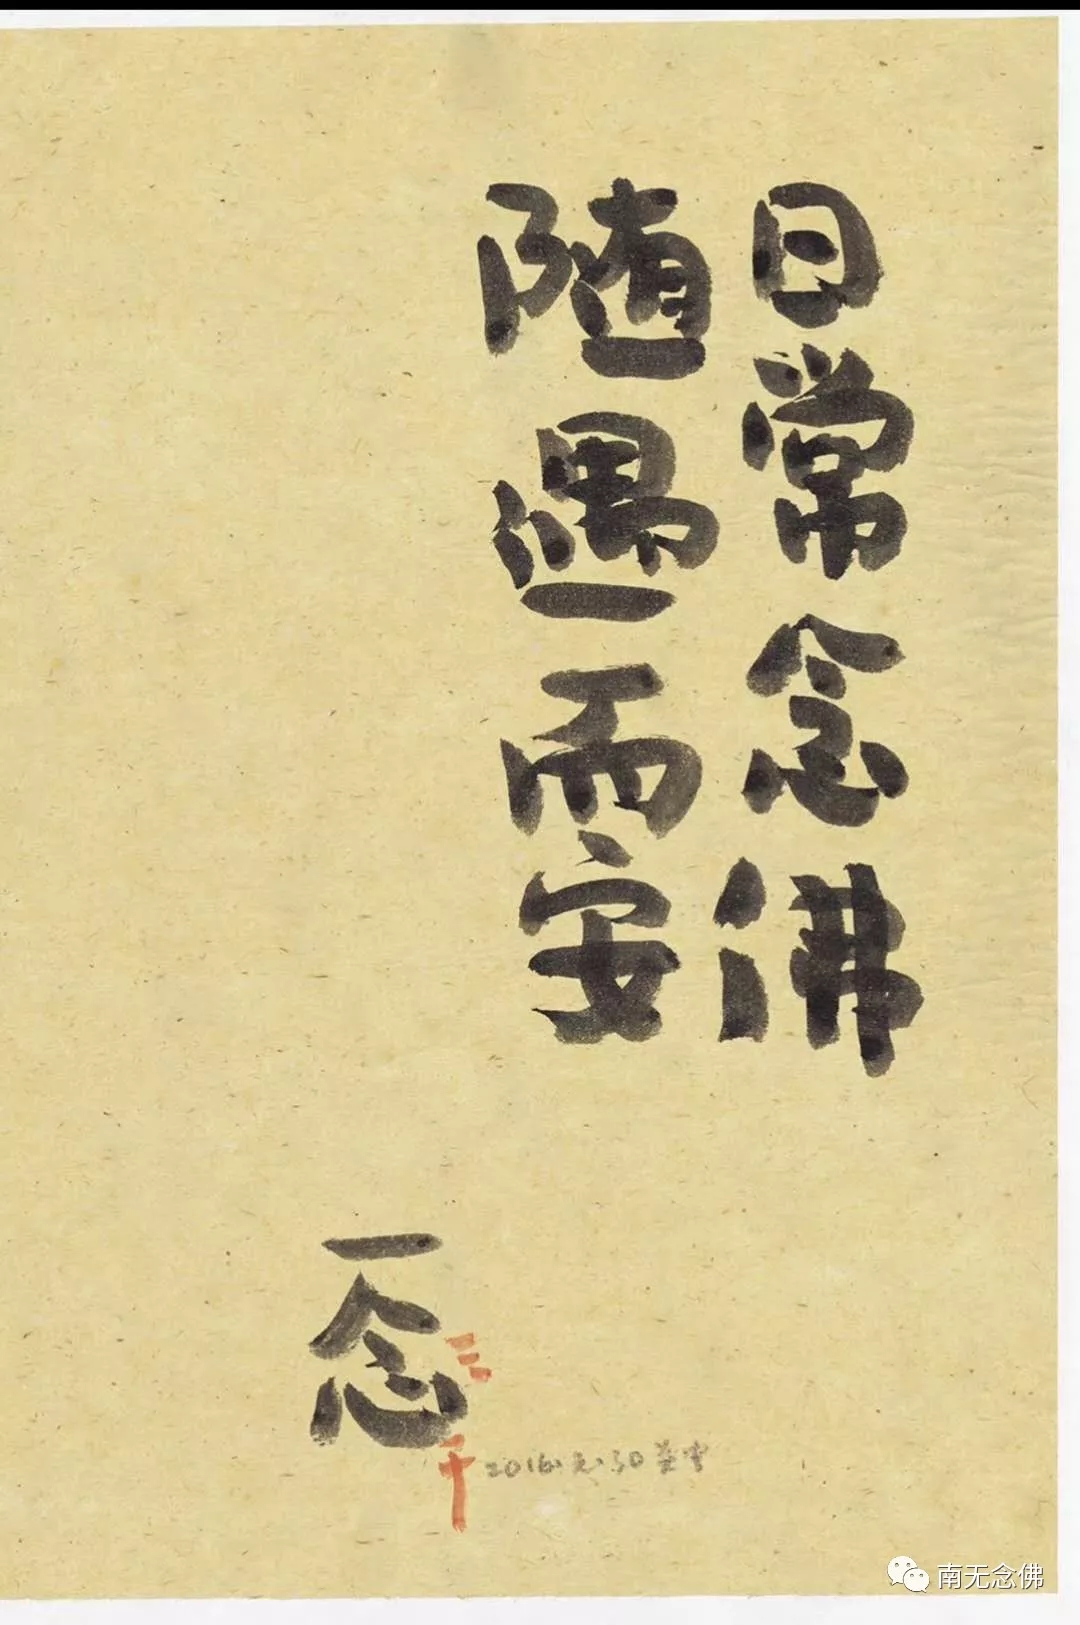 日常念佛
随遇而安
一念
三千
2016.元.30
南无念佛